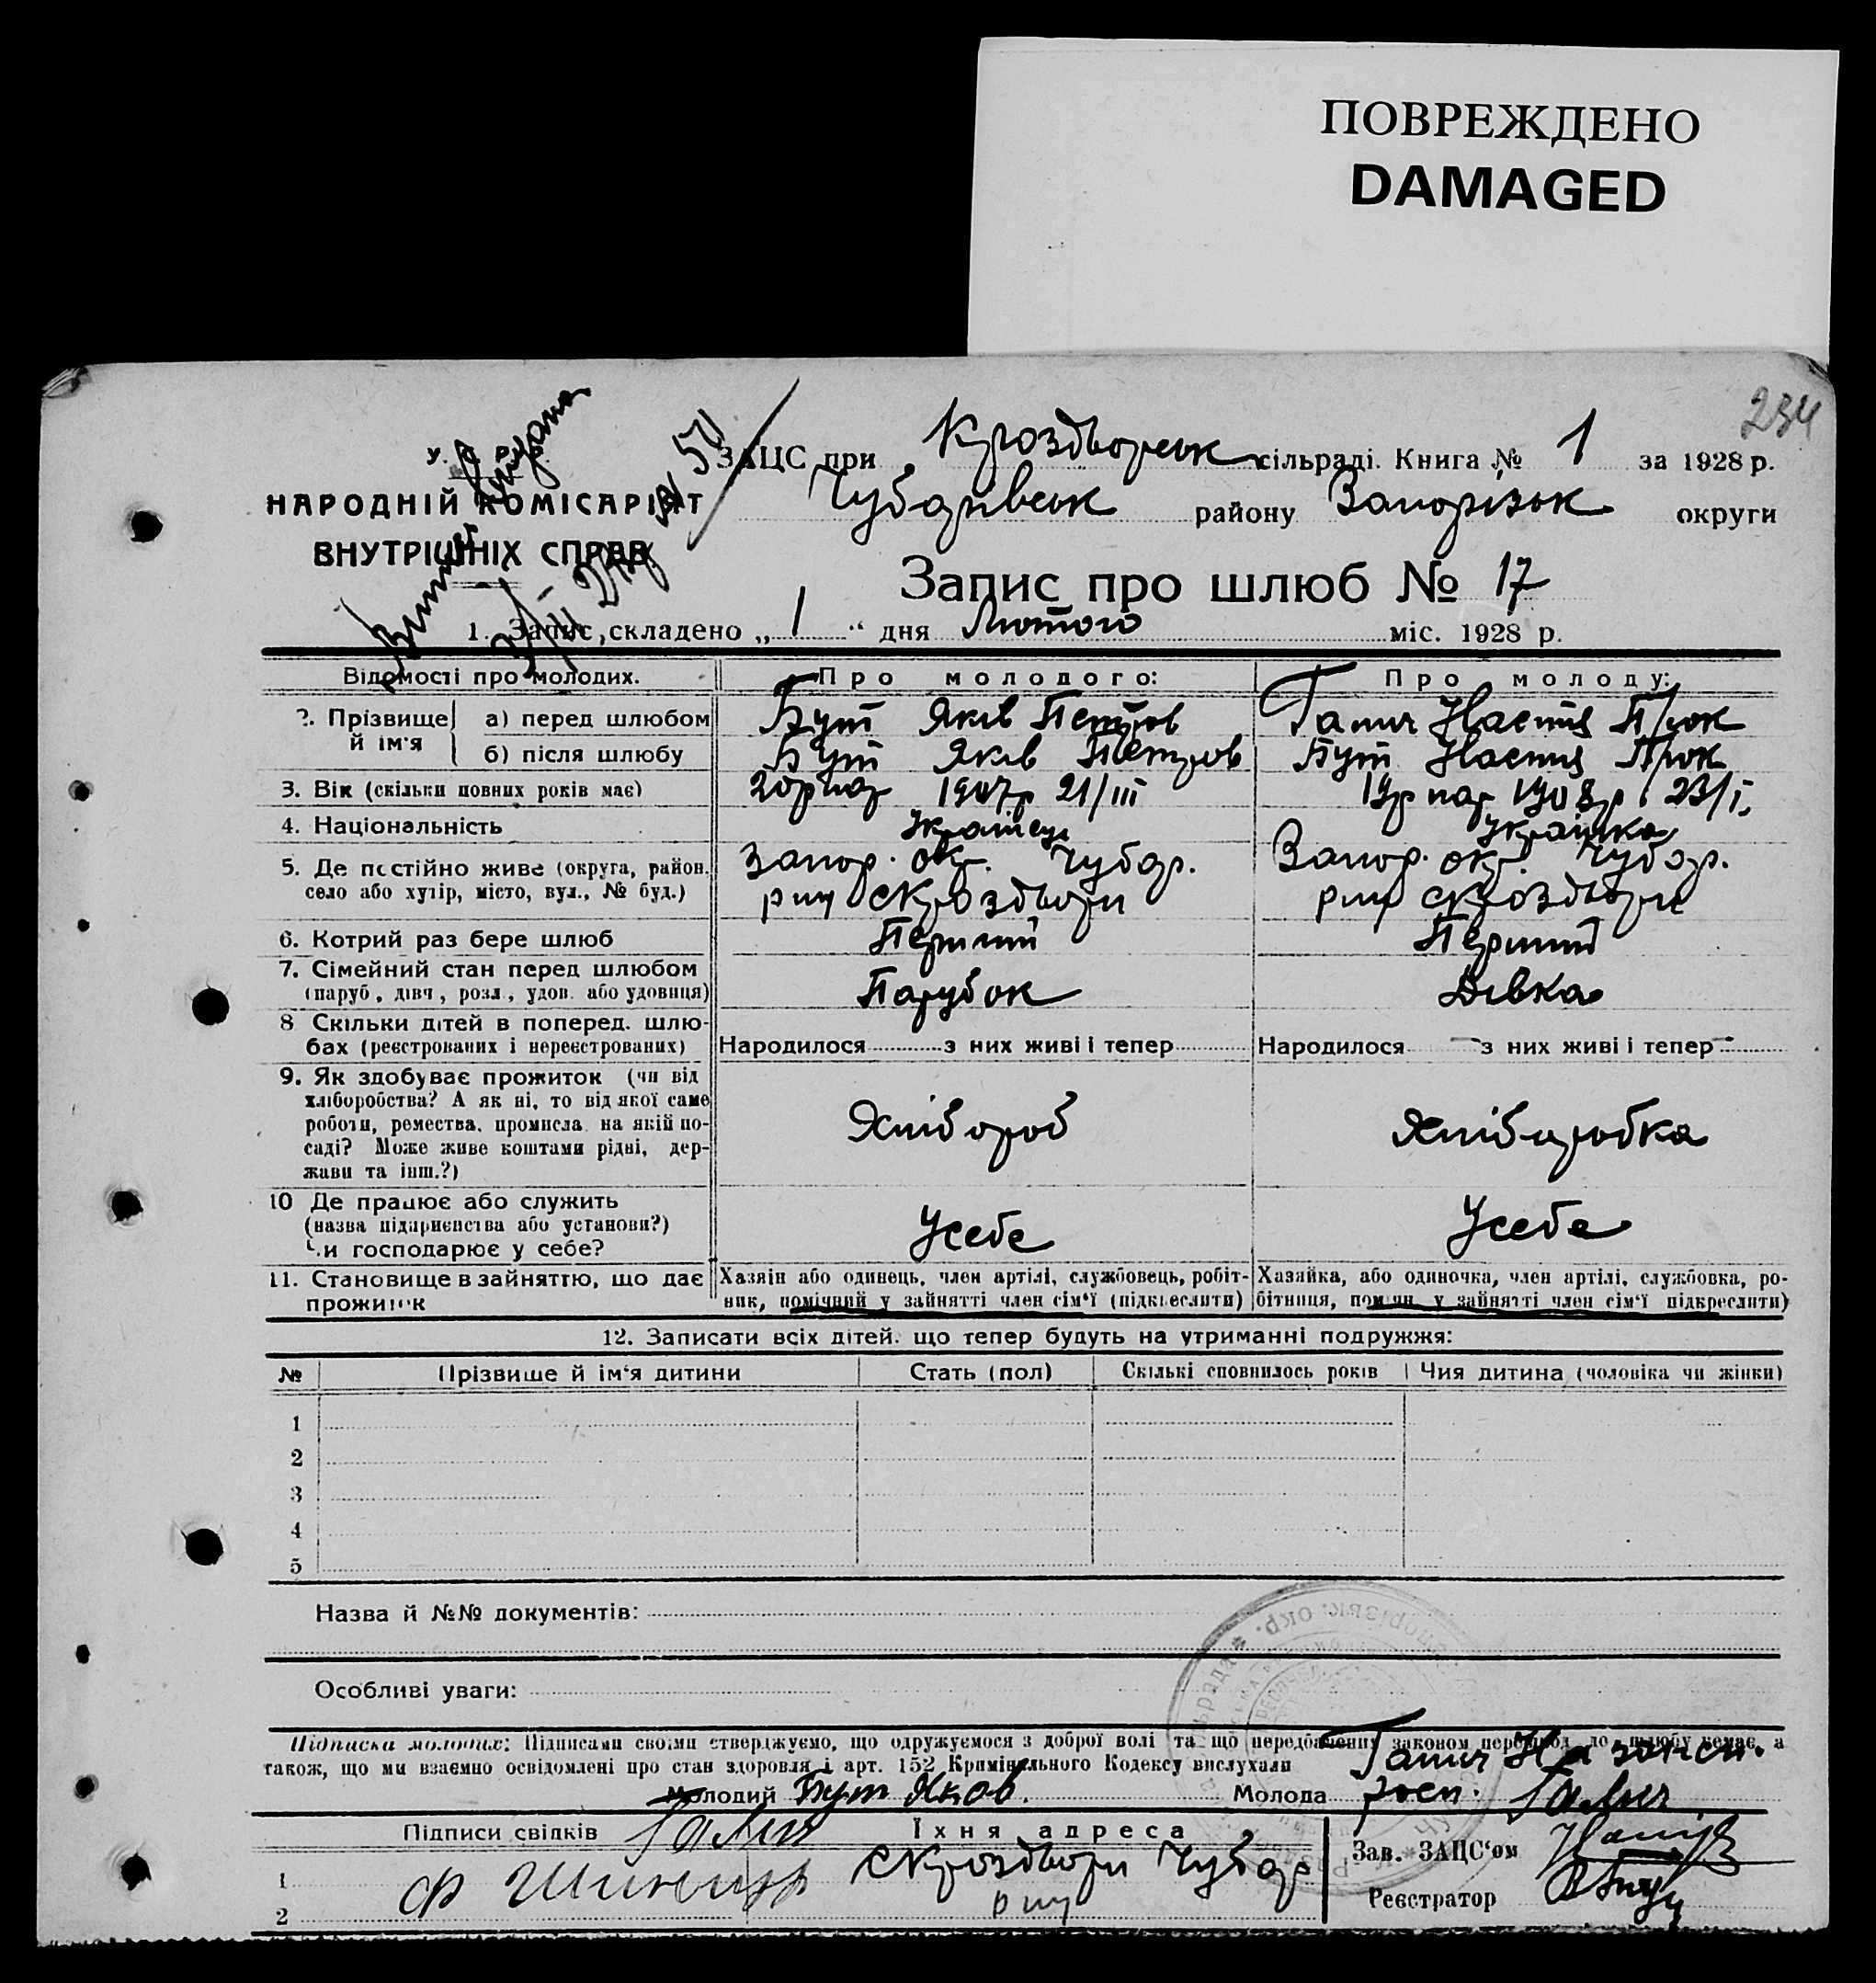 ПОВРЕЖДЕНО
DAMAGED
234
У. С. Р. Р.
НАРОДНІЙ КОМІСАРІЯТ
ВНУТРІШНІХ СПРАВ
ЗАЦС при Кроздворськ сільраді. Книга № 1 за 1928 р.
Чубарівськ району Запорізьк округи
Запис про шлюб № 17
1. Запис, складено „ 1 “ дня Лютого міс. 1928 р.
Відомості про молодих. Про молодого: Про молоду:
2. Прізвище й ім'я
а) перед шлюбом Бут Яків Петров Ганич Настя Прок
б) після шлюбу Бут Яків Петров Бут Настя Прок
3. Вік (скільки повних років має) 20р 1907р 21/III 19р 1908р 23/I
4. Національність Українець Українка
5. Де постійно живе (округа, район, Запор. окр. Чубар. Запор. окр. Чубар.
село або хутір, місто, вул., № буд.) рну сКроздвори рну сКроздвори
6. Котрий раз бере шлюб Перший Перший
7. Сімейний стан перед шлюбом
(паруб., дівч., розл., удов. або удовиця) Парубок Дівка
8 Скільки дітей в поперед. шлю-
бах (реєстрованих і нереєстрованих) Народилося з них живі і тепер Народилося - з них живі і тепер -
9. Як здобуває прожиток (чи від
хліборобства? А як ні, то від якої саме
роботи, ремества, промисла, на якій по- Хлібороб Хліборобка
саді? Може живе коштами рідні, дер-
жави та інш.?)
10 Де працює або служить
(назва підприємства або установи?) Усебе Усебе
Чи господарює у себе?
11. Становище в зайняттю, що дає Хазяїн або одинець, член артілі, службовець, робіт- Хазяйка, або одиночка, член артілі, службовка, ро-
прожиток ник, помічний у зайнятті член сім'ї (підкреслити) бітниця, помічн. у зайнятті член сім'ї підкреслити)
12. Записати всіх дітей, що тепер будуть на утриманні подружжя:
№ Прізвище й ім'я дитини Стать (пол) Скількі сповнилось років Чия дитина (чоловіка чи жінки)
1
2
3
4
5
Назва й №№ документів:
Особливі уваги:
Підписка молодих: Підписами своїми стверджуємо, що одружуємося з доброї волі та що передбачених законом перешкод до шлюбу немає, а
також, що ми взаємно освідомлені про стан здоровля і арт. 152 Кримінального Кодексу вислухали Ганич
Молодий Бут Яков. Молода
Підписи свідків Їхня адреса
Зав. ЗАЦС'ом
1 сКроздвори Чубар
рну
Реєстратор
2